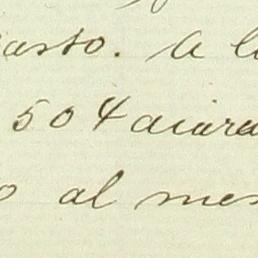 asto. A l
504 aiara
o al mes